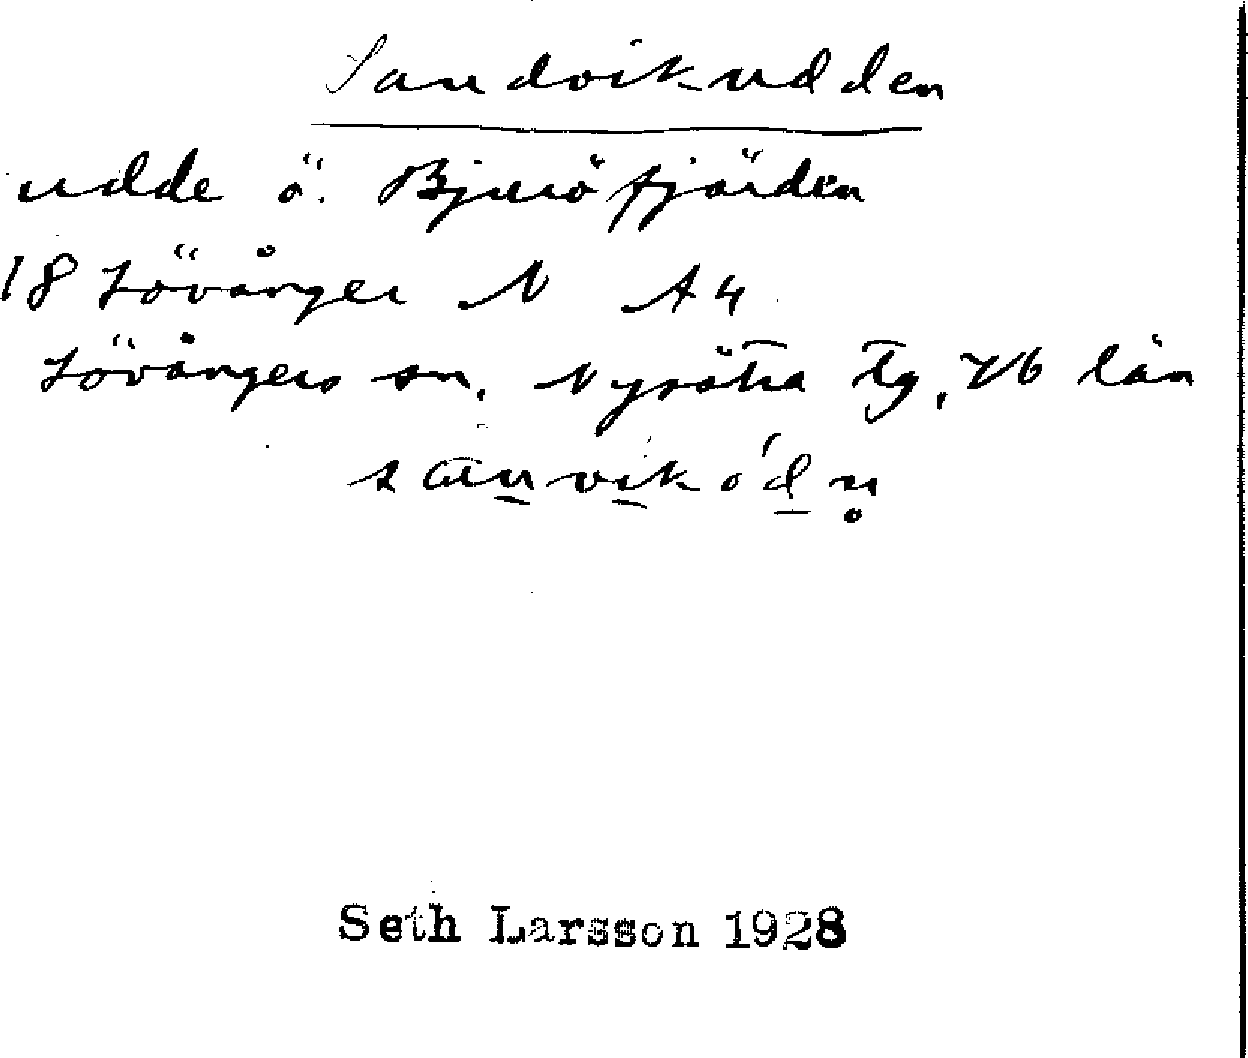 Sandvikudden
udde ö. Bjuröfjärden
18 Lövånger N A4
Lövångers sn, Nysätra tg, Vb län
sanvikódn̥
Seth Larsson 1928